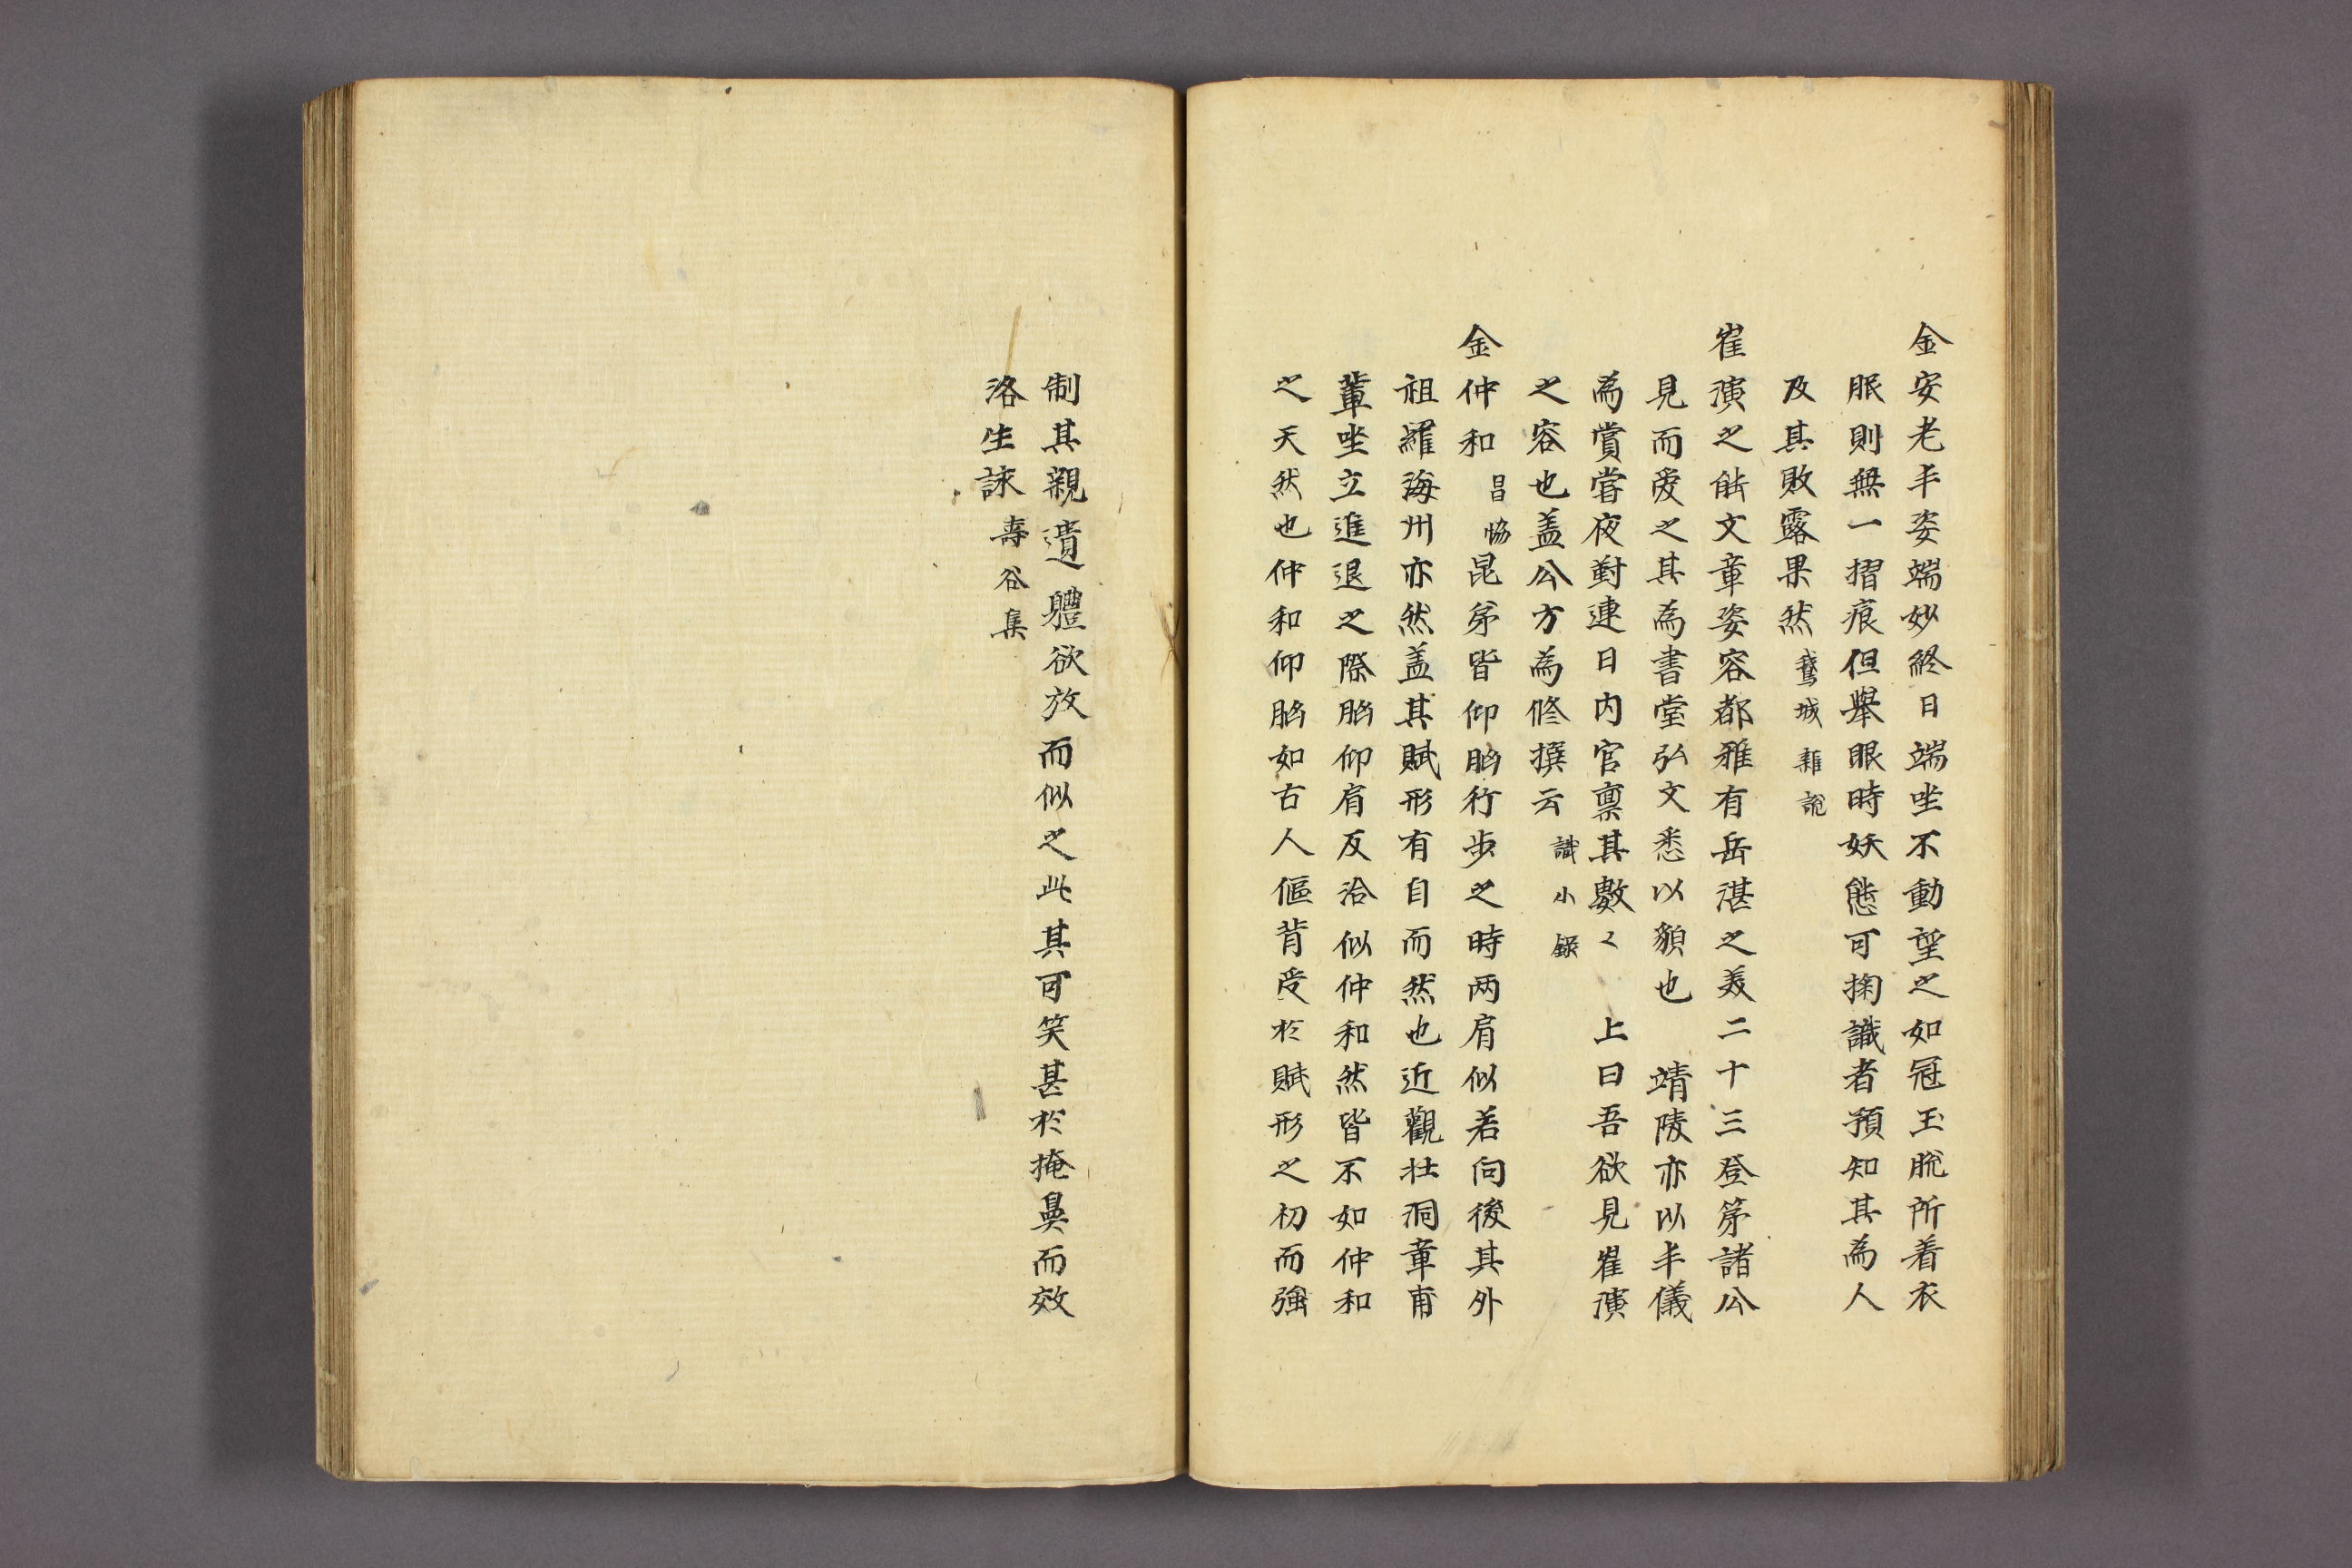 金安老丰姿端妙終日端坐不動望之如冠玉脫所着衣
服則無一摺痕但擧眼時妖態可掬識者預知其為人
及其敗露果然鵞城雜說
崔演之能文章姿容都雅有岳湛之美二十三登第諸公
見而愛之其為書堂弘文悉以貌也 靖陵亦以丰儀
為賞嘗夜對連日內官稟其數〻 上曰吾欲見崔演
之容也盖公方為修撰云識小錄
金仲和昌協昆弟皆仰胸行步之時兩肩似若向後其外
祖羅海州亦然盖其賦形有自而然也近觀壯洞章甫
輩坐立進退之際胸仰肩反洽似仲和然皆不如仲和
之天然也仲和仰胸如古人傴背受於賦形之初而強
制其親遺軆欲放而似之此其可笑甚於掩鼻而效
洛生詠壽谷集